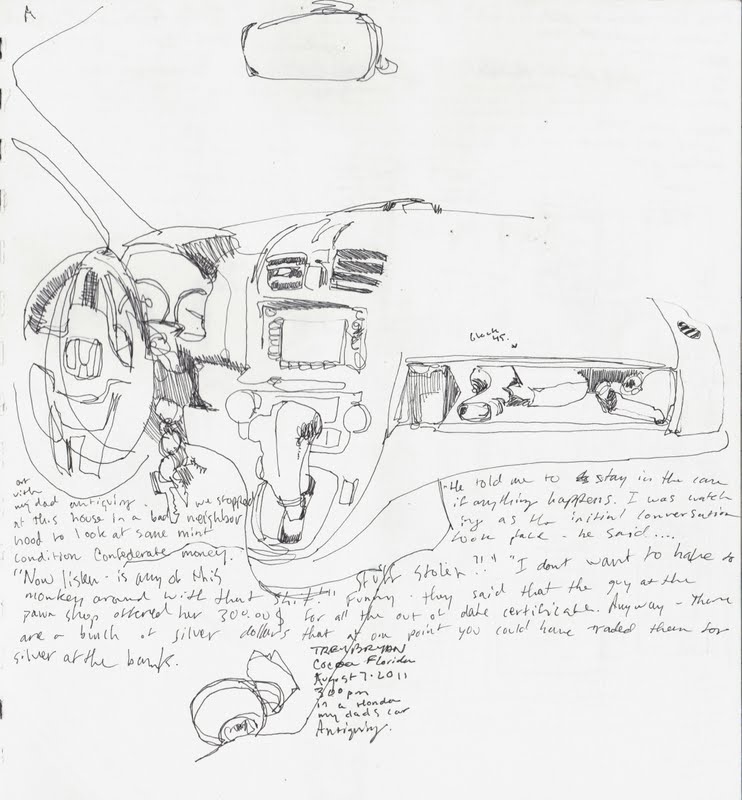 A
Glock
45.
out
with
my dad antiquing. we stopped
at this house in a bad neighbor
hood to look at some mint
condition Confederate money.
"Now listen - is any of this
He told me to stay in the car
if anything happens. I was watch
ing as the initial conversation
took place - he said....
stuff stolen?!" "I dont want to have to
monkey around with that shit" Funny. they said that the guy at the
pawn shop offered her 300.00$ for all the out of date certificate. Anyway - There
are a bunch of silver dollars that at one point you could have traded them for
silver at the bank.
TREY BRYAN
Cocoa Florida
August 7. 2011
300pm
in a Honda
my dads car
Antiquing.